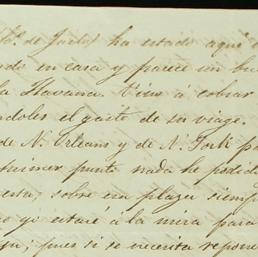 de Justiz ha estado aqui
en casa y parece un bu
la Havana. Vino á cobrar
ndoles el gasto de su viage.
de N. Orleans y de N. York pa
primer punto nada he podid
esta, sobre un plazo siemp
yo estaré á la mira para
pues si se necesita repone